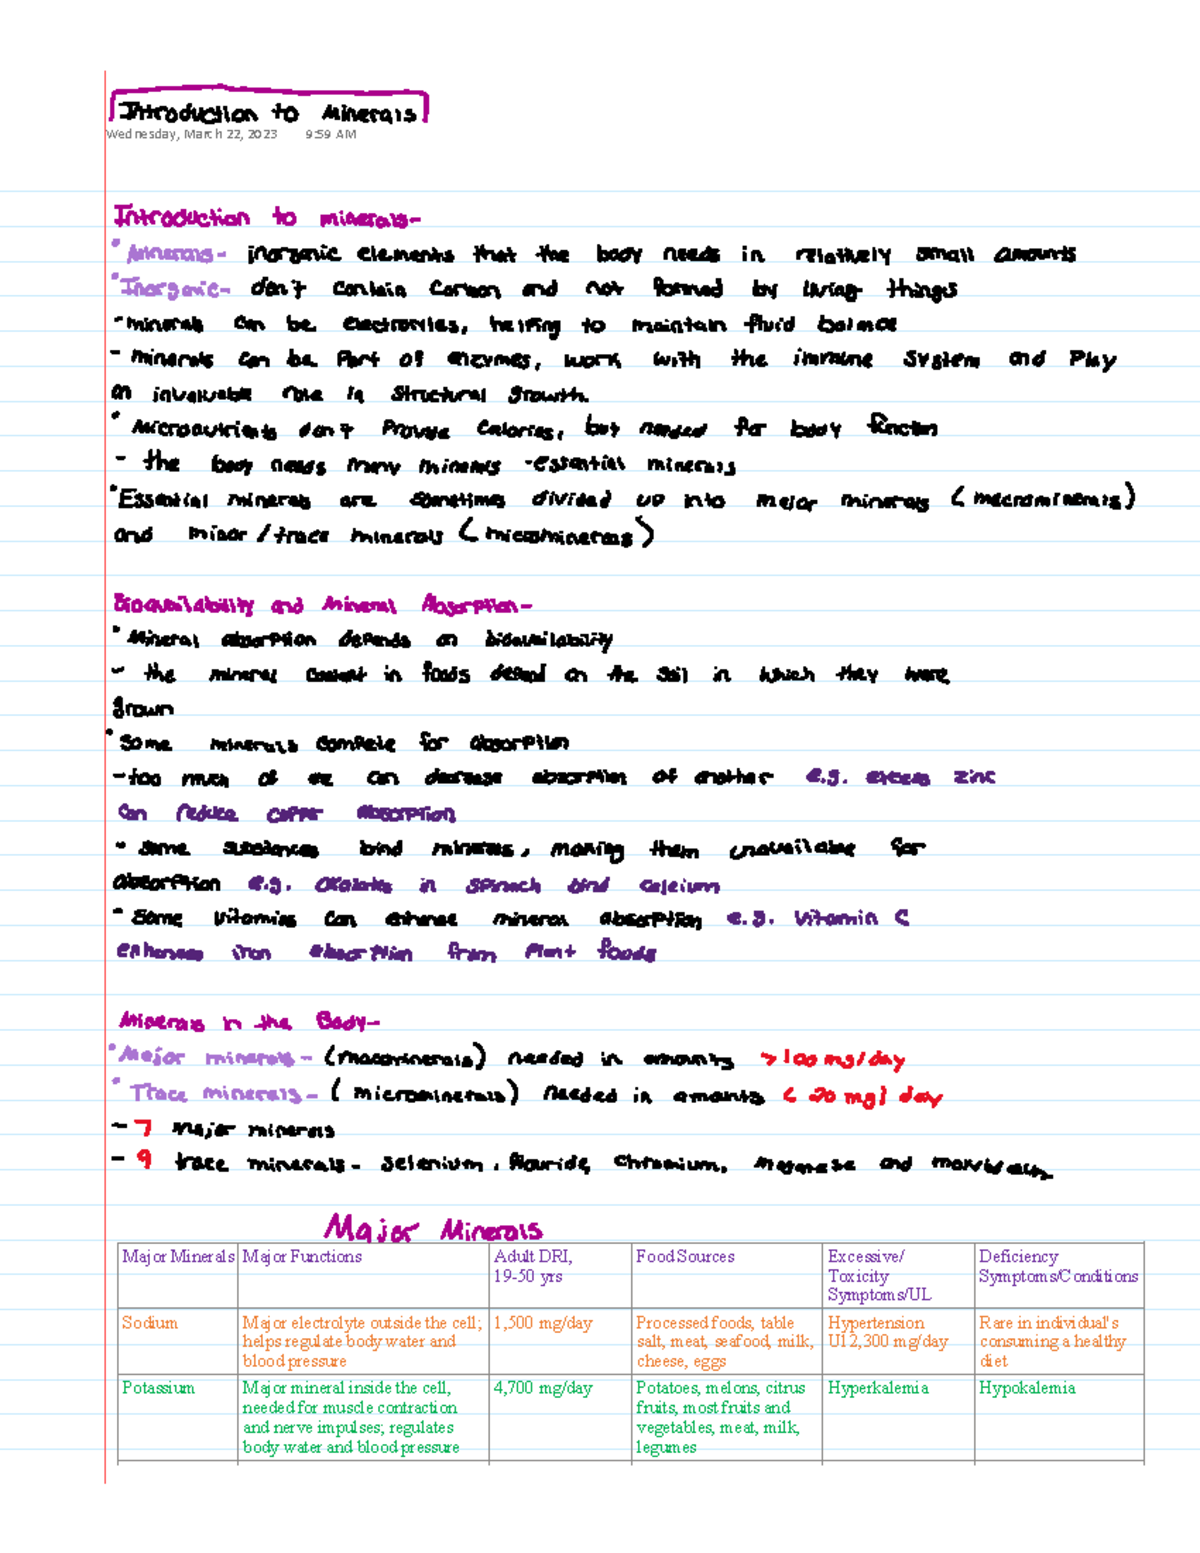 Introduction to Minerals
Wednesday, March 22, 2023 9:59 AM
Introduction to minerals-
• Minerals- inorganic elements that the body needs in relatively small amounts
• Inorganic- don't contain carbon and not formed by living things
- minerals can be electrolytes, helping to maintain fluid balance
- minerals can be part of enzymes, work with the immune system and play
an invaluable role in structural growth.
• Micronutrients don't provide calories, but needed for body function
- the body needs many minerals - essential minerals
• Essential minerals are sometimes divided up into major minerals (macrominerals)
and minor/trace minerals (microminerals)
Bioavailability and Mineral Absorption-
• Mineral absorption depends on bioavailability
- the mineral content in foods depend on the soil in which they were
grown
• Some minerals compete for absorption
- too much of one can decrease absorption of another e.g. excess zinc
can reduce copper absorption
- some substances bind minerals, making them unavailable for
absorption e.g. oxalates in spinach bind calcium
- Some vitamins can enhance mineral absorption e.g. vitamin C
enhances iron absorption from plant foods
Minerals in the Body-
• Major minerals- (macrominerals) needed in amounts >100 mg/day
• Trace minerals- (microminerals) needed in amounts < 20 mg/day
- 7 major minerals
- 9 trace minerals- selenium, flouride, chromium, manganese and molybdenum
Major Minerals
Major Minerals Major Functions Adult DRI, 19-50 yrs Food Sources Excessive/ Toxicity Symptoms/UL Deficiency Symptoms/Conditions
Sodium Major electrolyte outside the cell; helps regulate body water and blood pressure 1,500 mg/day Processed foods, table salt, meat, seafood, milk, cheese, eggs Hypertension U12,300 mg/day Rare in individual's consuming a healthy diet
Potassium Major mineral inside the cell, needed for muscle contraction and nerve impulses; regulates body water and blood pressure 4,700 mg/day Potatoes, melons, citrus fruits, most fruits and vegetables, meat, milk, legumes Hyperkalemia Hypokalemia